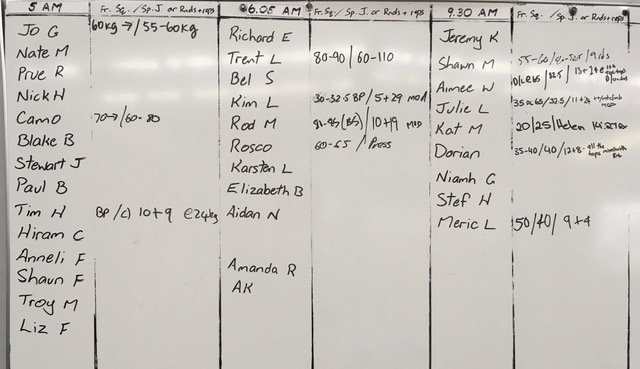 5 AM
Fr. Sq. / Sp. J. or Rnds + reps
Jo G 60kg → / 55-60kg
Nate M
Prue R
Nick H
Camo 70→ / 60-80
Blake B
Stewart J
Paul B
Tim H BP / C) 10+9 @24kg
Hiram C
Anneli F
Shaun F
Troy M
Liz F
6.05 AM
Fr. Sq. / Sp. J. or Rnds + reps
Richard E
Trent L 80-90 / 60-110
Bel S
Kim L 30-32.5 BP / 5+29 MOD
Rod M (BS) / 10+9 MOD
Rosco 60-65 / Press
Karsten L
Elizabeth B
Aidan N
Amanda R
AK
9.30 AM
Fr. Sq. / Sp. J. or Rnds + reps
Jeremy K
Shawn M 55-60 /
Aimee W
Julie L 32.5 / 11+24
Kat M 20/25/Helen
Dorian 35-40/40/12+8-
Niamh G
Stef H
Meric L 50/40/ 9+4